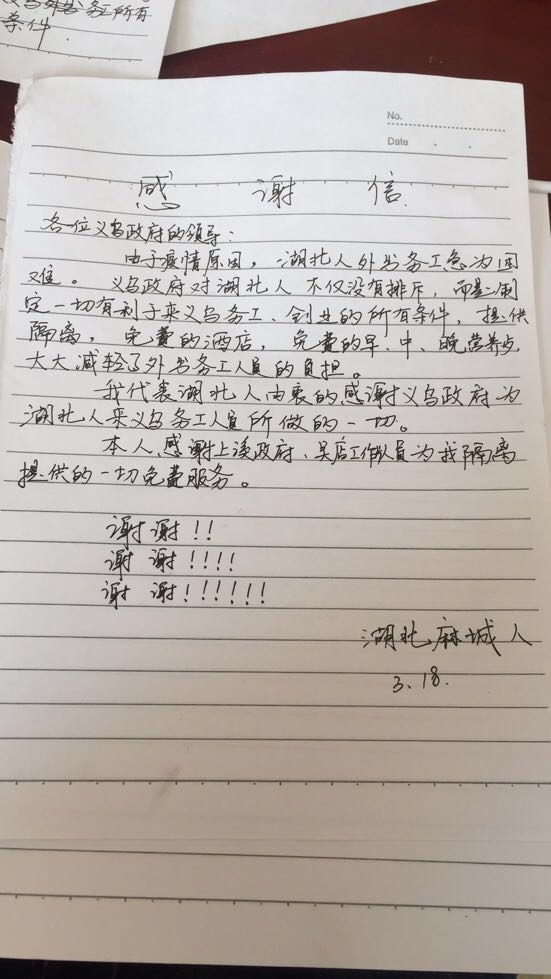 外出务工所有
条件
No.
Date
感 谢 信
各位义乌政府的领导:
由于疫情原因,湖北人外出务工急为困
难。义乌政府对湖北人不仅没有排斥,而是制
定一切有利于来义乌务工、创业的所有条件,提供
隔离,免费的酒店,免费的早、中、晚营养
大大减轻了外出务工人员的负担。
我代表湖北人由衷的感谢义乌政府为
湖北人来义乌务工人员所做的一切。
本人感谢上溪政府、吴店工作人员为我隔离
提供的一切免费服务。
谢谢!!
谢谢!!!!
谢谢!!!!!!
湖北麻城人
3.18.